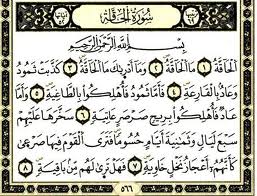 سُورَةُ الْحَاقَّةِ
بِسْمِ اللَّهِ الرَّحْمَٰنِ الرَّحِيمِ
الْحَاقَّةُ ١ مَا الْحَاقَّةُ ٢ وَمَا أَدْرَىٰكَ مَا الْحَاقَّةُ ٣ كَذَّبَتْ ثَمُودُ
وَعَادٌ بِالْقَارِعَةِ ٤ فَأَمَّا ثَمُودُ فَأُهْلِكُوا بِالطَّاغِيَةِ ٥ وَأَمَّا
عَادٌ فَأُهْلِكُوا بِرِيحٍ صَرْصَرٍ عَاتِيَةٍ ٦ سَخَّرَهَا عَلَيْهِمْ
سَبْعَ لَيَالٍ وَثَمَٰنِيَةَ أَيَّامٍ حُسُومًا فَتَرَى الْقَوْمَ فِيهَا صَرْعَىٰ
كَأَنَّهُمْ أَعْجَازُ نَخْلٍ خَاوِيَةٍ ٧ فَهَلْ تَرَىٰ لَهُم مِّن بَاقِيَةٍ ٨
٥٦٦